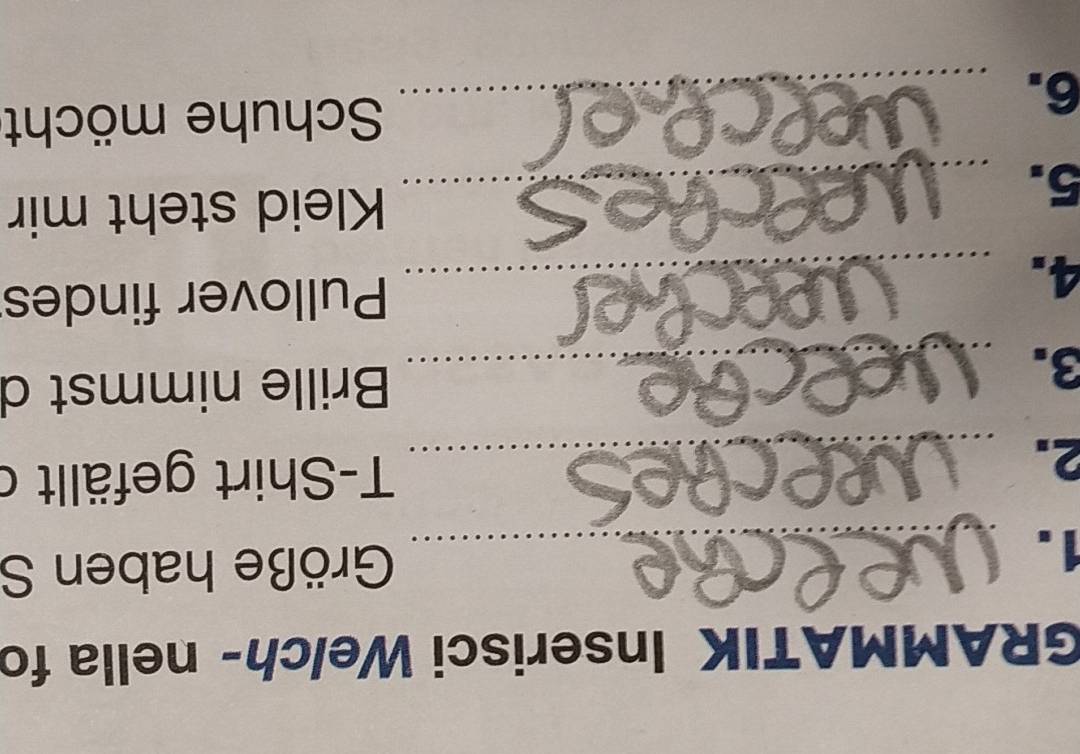 GRAMMATIK Inserisci Welch- nella fo
1. welche Größe haben S
2. welches T-Shirt gefällt d
3. welche Brille nimmst d
4. welcher Pullover findes
5. welches Kleid steht mir
6. welcher Schuhe möcht